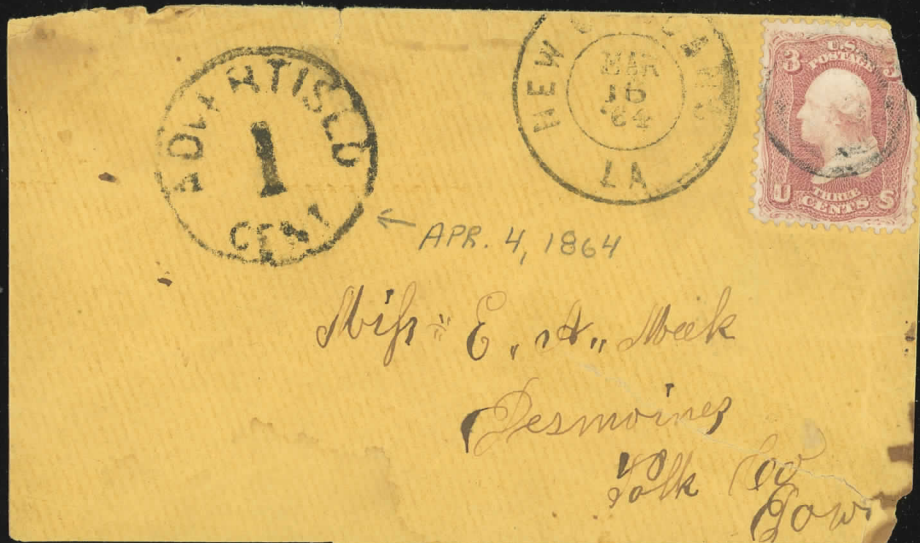 ADVERTISED
1
CENT
NEW ORLEANS
MAR
16
'64
LA
3 U.S. 3
POSTAGE
THREE
U CENTS S
← APR. 4, 1864
Miss E. A. Meek
Desmoines
Polk Co
Iowa